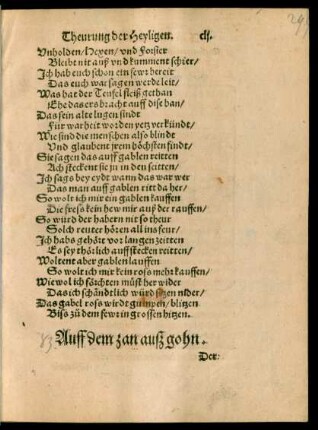 Theurung der Heyligen. clj.
Vnholden/ Hexen/ vnd Forster
Bleibt nit auß vnd kumment schier/
Ich hab euch schon ein fewr bereit
Das euch warsagen werde leit/
Was hat der Teufel fleiß gethan
Ehe das ers bracht auff dise ban/
Das sein alte lugen sindt
Für warheit worden yetz verkündt/
Wie sind die menschen also blindt
Vnd glaubent jrem höchsten findt/
Sie sagen das auff gablen reitten
Ach steckent sie zu in den seitten/
Ich sags bey eydt wann das war wer
Das man auff gablen ritt da her/
So wolt ich mir ein gablen kauffen
Die fress kein hew mir auß der rauffen/
So würd der habern nit so theur
Solch reuter hören all ins feur/
Ich habs gehört vor langen zeitten
Es sey thörlich auff stecken reitten/
Woltent aber gablen lauffen
So wolt ich mir kein ross mehr kauffen/
Wiewol ich förchten müst herwider
Das ich schändtlich würd sitzen nider/
Das gabel ross wirdt gumpen/ blitzen
Biss zů dem fewr in grossen hitzen.
Auff dem zan auß gohn.
Der